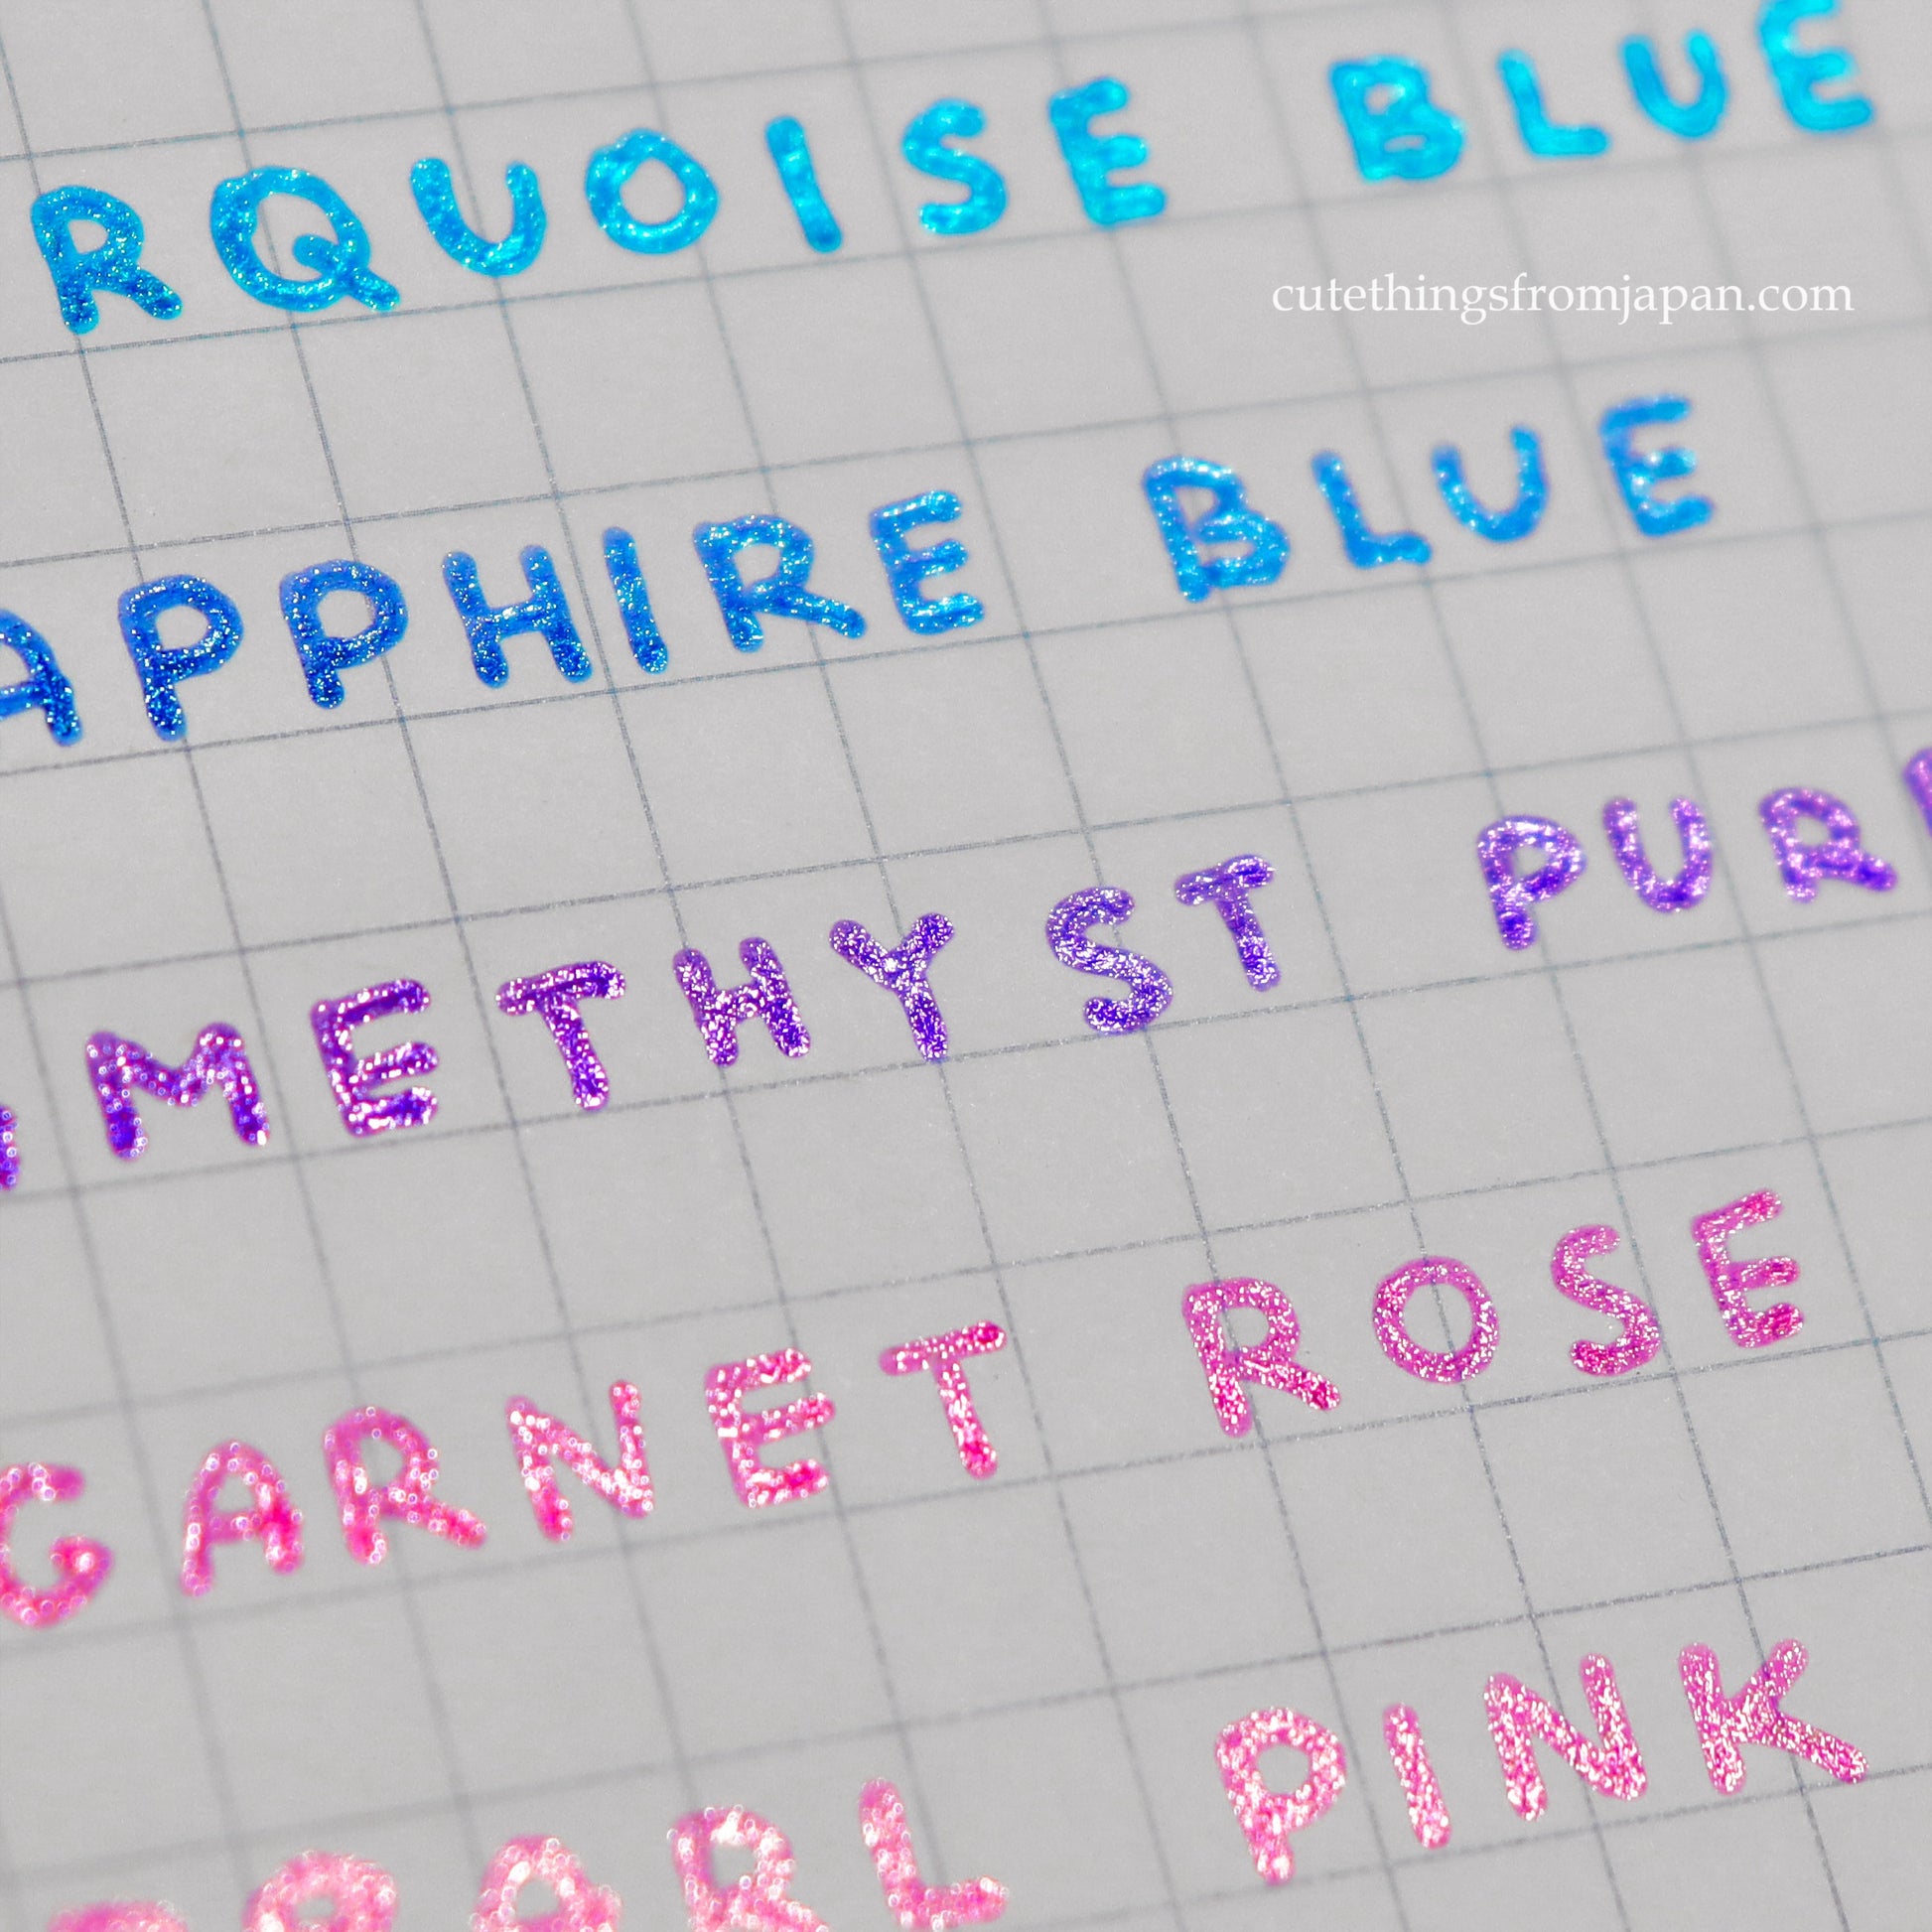 RQUOISE BLUE
cutethingsfromjapan.com
APPHIRE BLUE
METHYST PUR
GARNET ROSE
PEARL PINK